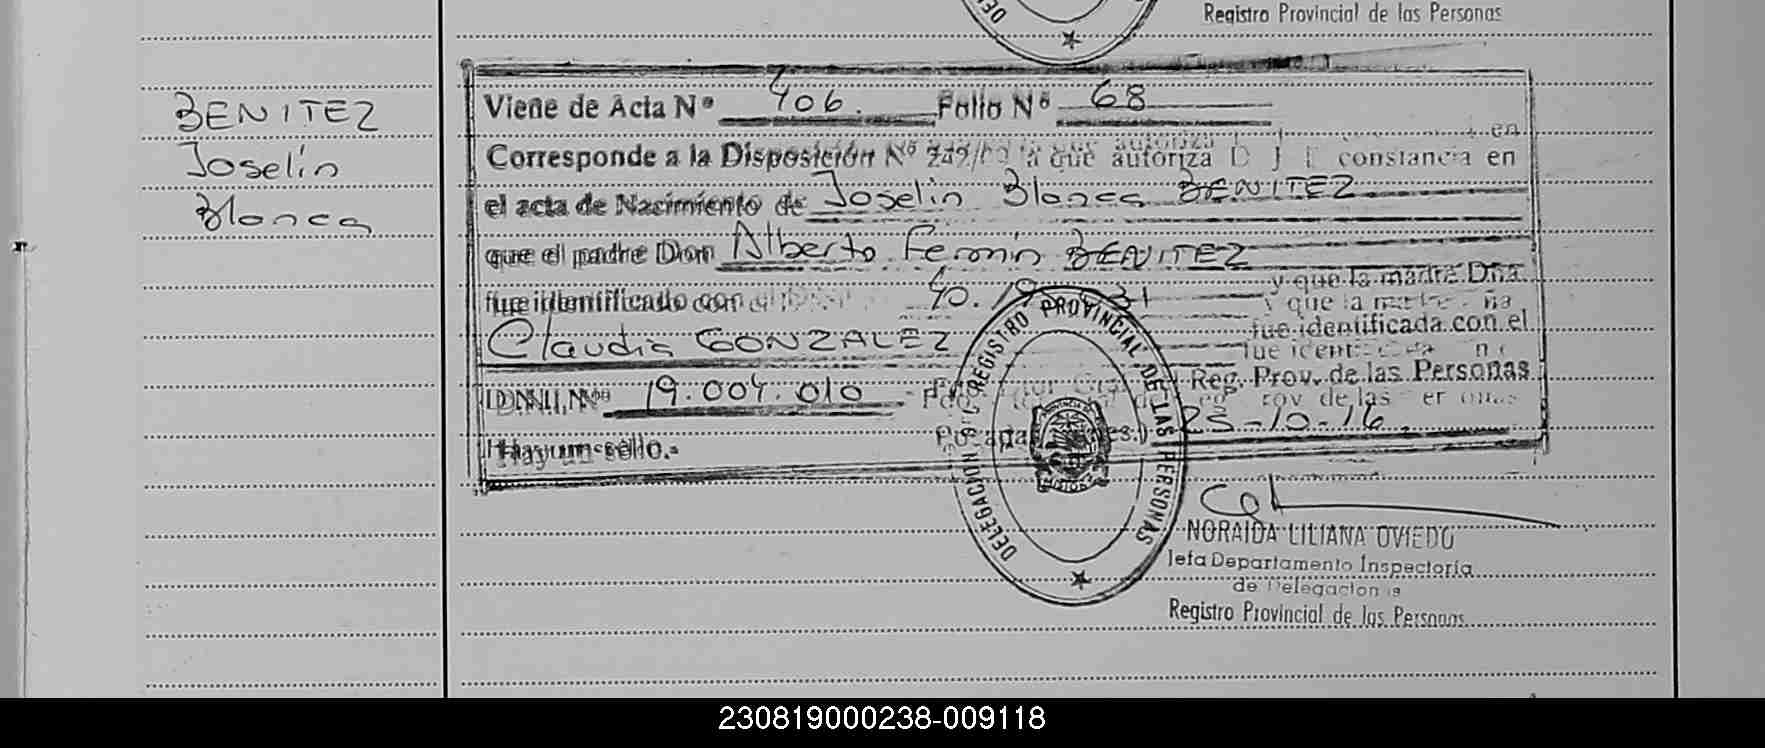 Registro Provincial de las Personas
BENITEZ
Joselin
Blanca
Viene de Acta Nº 406. Folio Nº 68
Corresponde a la Disposición Nº que autoriza constancia en
el acta de Nacimiento de Joselin Blanca BENITEZ
que el padre Don Alberto Fermin BENITEZ
fue identificado con y que la madre Dña
Claudia GONZALEZ fue identificada con el
D.N.I. Nº 19.004.010 Reg. Prov. de las Personas
Hay un sello.- 25-10-16.
DELEGACION DEL REGISTRO PROVINCIAL DE LAS PERSONAS
NORAIDA LILIANA OVIEDO
Jefa Departamento Inspectoría
de Delegaciones
Registro Provincial de las Personas
230819000238-009118